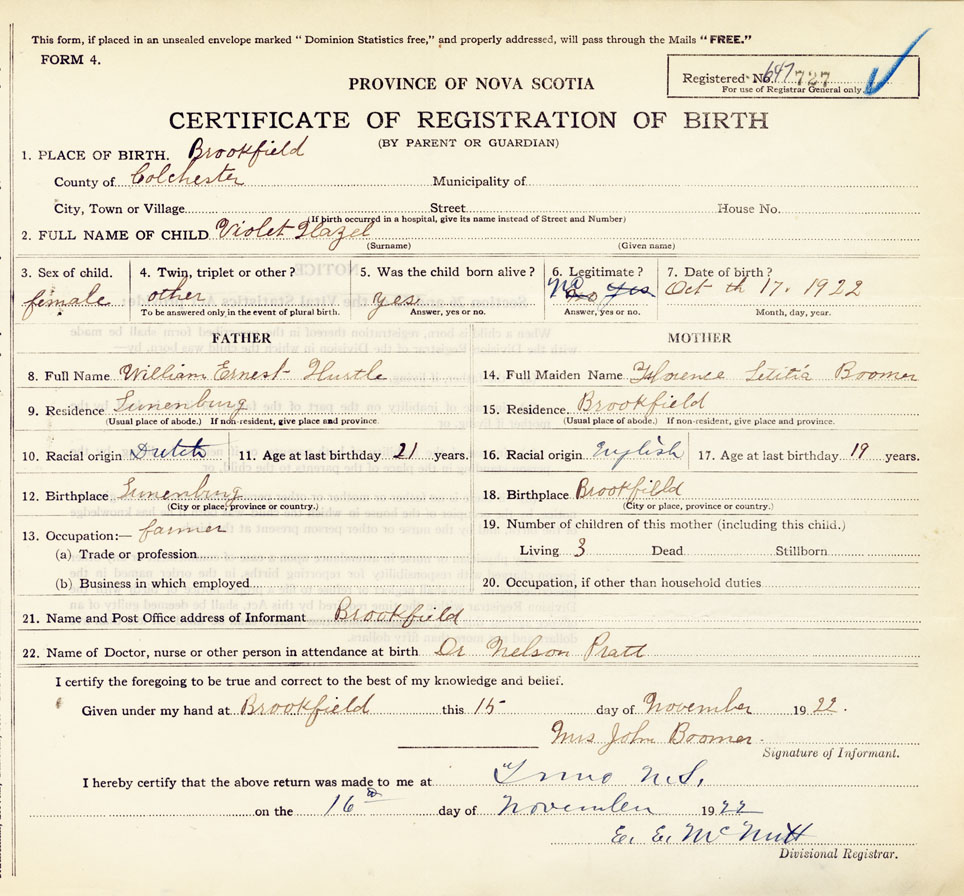 This form, if placed in an unsealed envelope marked “ Dominion Statistics free,” and properly addressed, will pass through the Mails “ FREE.”
FORM 4.
PROVINCE OF NOVA SCOTIA
Registered No. 647 727
For use of Registrar General only.
CERTIFICATE OF REGISTRATION OF BIRTH
(BY PARENT OR GUARDIAN)
1. PLACE OF BIRTH. Brookfield
County of Colchester Municipality of
City, Town or Village Street House No.
(If birth occurred in a hospital, give its name instead of Street and Number)
2. FULL NAME OF CHILD Violet Hazel
(Surname) (Given name)
3. Sex of child. 4. Twin, triplet or other? 5. Was the child born alive? 6. Legitimate? 7. Date of birth?
female other yes no no yes Oct th 17. 1922
To be answered only in the event of plural birth. Answer, yes or no. Answer, yes or no. Month, day, year.
FATHER MOTHER
8. Full Name William Ernest Hustle 14. Full Maiden Name Florence Letitia Boomer
9. Residence Lunenburg 15. Residence. Brookfield
(Usual place of abode.) If non-resident, give place and province. (Usual place of abode.) If non-resident, give place and province.
10. Racial origin Dutch 11. Age at last birthday 21 years. 16. Racial origin English 17. Age at last birthday 19 years.
12. Birthplace Lunenburg 18. Birthplace Brookfield
(City or place, province or country.) (City or place, province or country.)
13. Occupation:— farmer 19. Number of children of this mother (including this child.)
(a) Trade or profession Living 3 Dead Stillborn
(b) Business in which employed 20. Occupation, if other than household duties
21. Name and Post Office address of Informant Brookfield
22. Name of Doctor, nurse or other person in attendance at birth Dr Nelson Pratt
I certify the foregoing to be true and correct to the best of my knowledge and belief.
Given under my hand at Brookfield this 15 day of November 19 22.
Mrs John Boomer
Signature of Informant.
I hereby certify that the above return was made to me at Truro N.S.
on the 16 day of November 19 22
E. E. McNutt
Divisional Registrar.